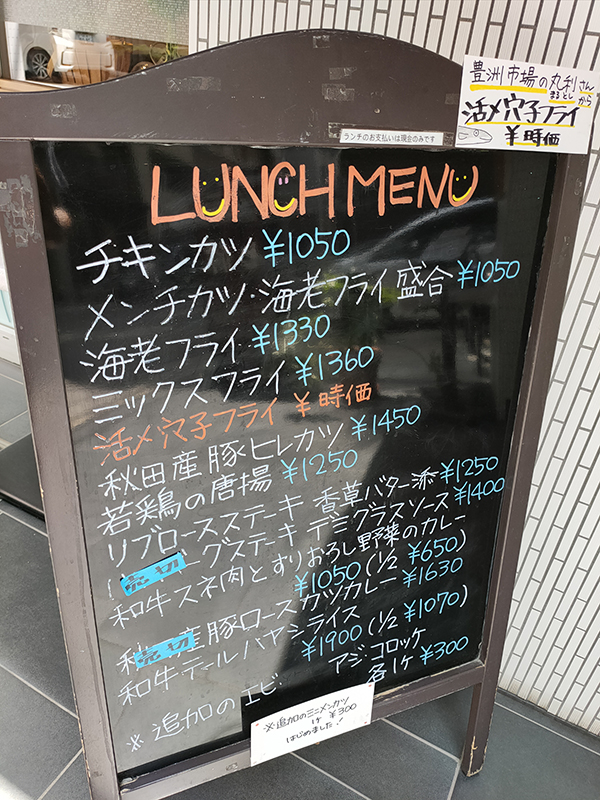 豊洲市場の丸利さん
まるとし から
活〆穴子フライ
¥時価
ランチのお支払いは現金のみです
LUNCH MENU
チキンカツ ¥1050
メンチカツ・海老フライ盛合 ¥1050
海老フライ ¥1330
ミックスフライ ¥1360
活〆穴子フライ ¥時価
秋田産豚ヒレカツ ¥1450
若鶏の唐揚 ¥1250
リブロースステーキ 香草バター添 ¥1250
売切 グステーキ デミグラスソース ¥1400
和牛スネ肉とすりおろし野菜のカレー
¥1050 (1/2 ¥650)
秋 売切 産豚ロースカツカレー ¥1630
和牛テールハヤシライス
¥1900 (1/2 ¥1070)
※追加のエビ・アジ・コロッケ
各1ケ ¥300
※追加のミニメンカツ
1ケ ¥300
はじめました!